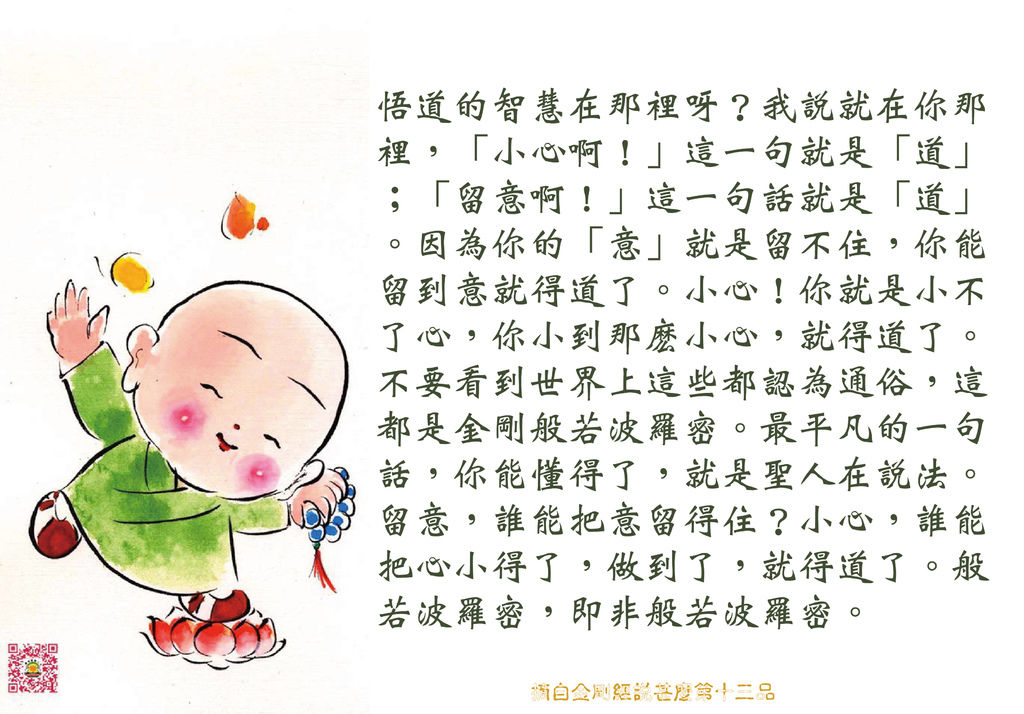 悟道的智慧在那裡呀？我説就在你那
裡，「小心啊！」這一句就是「道」
；「留意啊！」這一句話就是「道」
。因為你的「意」就是留不住，你能
留到意就得道了。小心！你就是小不
了心，你小到那麼小心，就得道了。
不要看到世界上這些都認為通俗，這
都是金剛般若波羅密。最平凡的一句
話，你能懂得了，就是聖人在説法。
留意，誰能把意留得住？小心，誰能
把心小得了，做到了，就得道了。般
若波羅密，即非般若波羅密。
摘自金剛經說甚麼第十三品